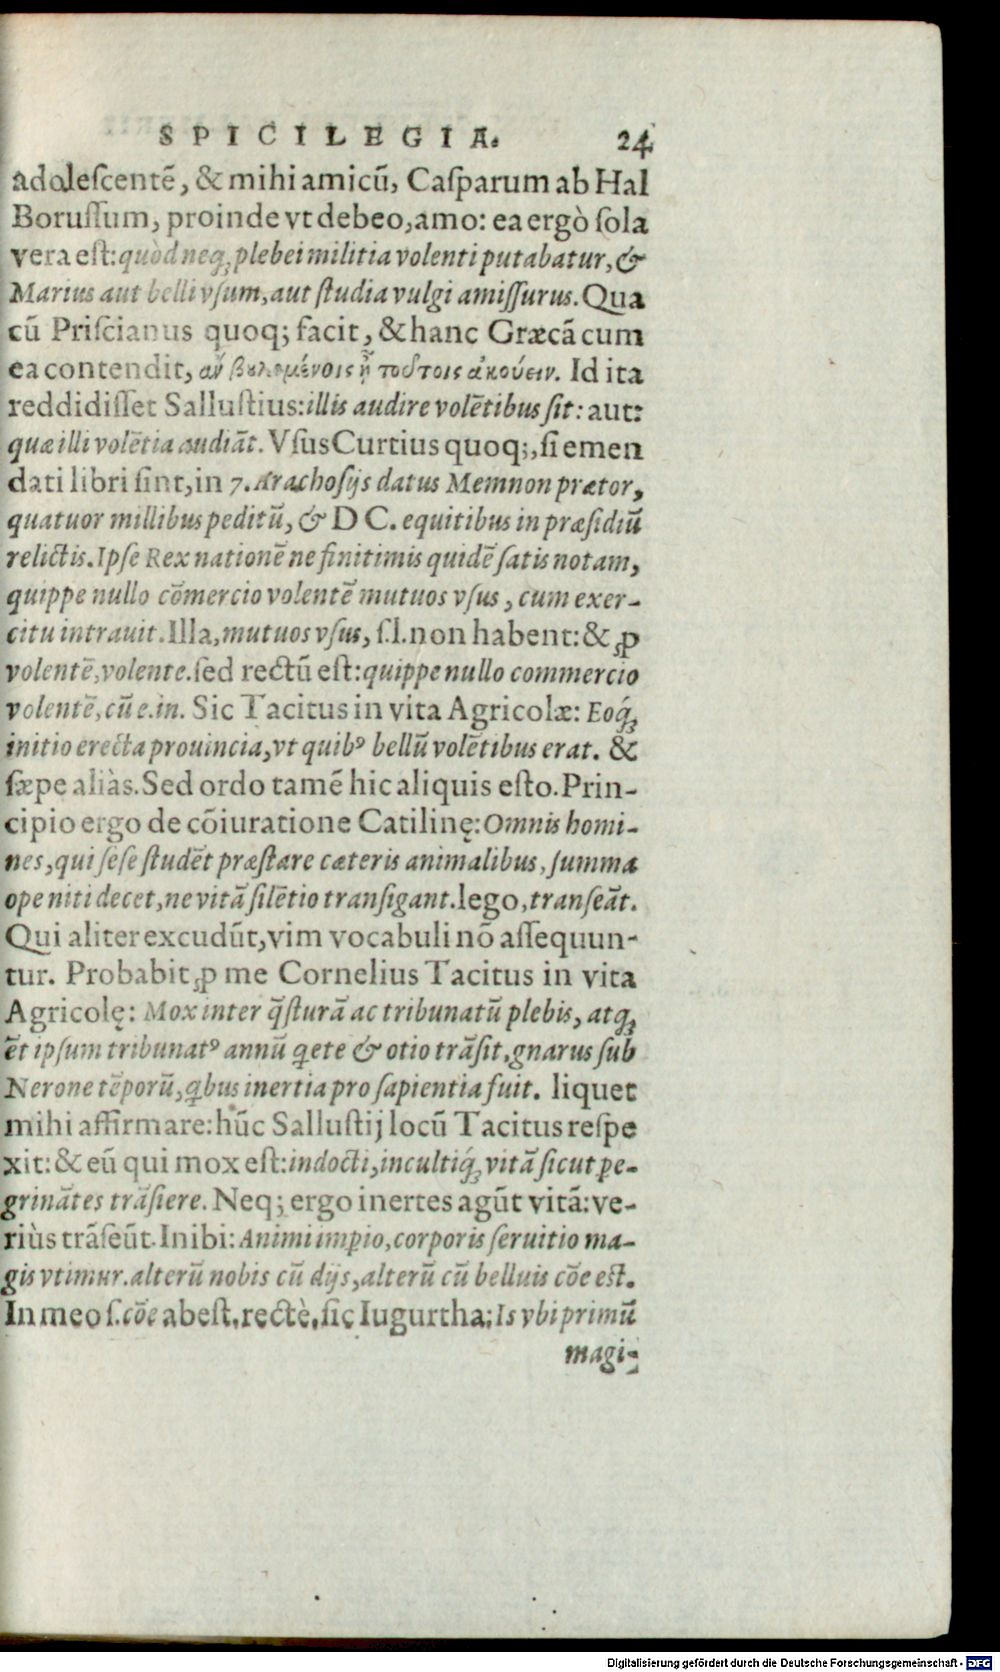 SPICILEGIA. 24
adolescentē, & mihi amicū, Casparum ab Hal
Borussum, proinde vt debeo, amo: ea ergò sola
vera est: quòd neq; plebei militia volenti putabatur, &
Marius aut belli vsum, aut studia vulgi amissurus. Qua
cū Priscianus quoq; facit, & hanc Græcā cum
ea contendit, ἀν βουλομένοις ᾖ τούτοις ἀκούειν. Id ita
reddidisset Sallustius: illis audire volētibus sit: aut:
quæ illi volētia audiāt. Vsus Curtius quoq;, si emen
dati libri sint, in 7. Arachosijs datus Memnon prætor,
quatuor millibus peditū, & DC. equitibus in præsidiū
relictis. Ipse Rex nationē ne finitimis quidē satis notam,
quippe nullo cōmercio volentē mutuos vsus, cum exer-
citu intrauit. Illa, mutuos vsus, s.l. non habent: & ꝓ
volentē, volente. sed rectū est: quippe nullo commercio
volentē, cū e. in. Sic Tacitus in vita Agricolæ: Eoq́;
initio erecta prouincia, vt quibꝰ bellū volētibus erat. &
sæpe aliàs. Sed ordo tamē hic aliquis esto. Prin-
cipio ergo de cōiuratione Catilinę: Omnis homi-
nes, qui sese studēt præstare cæteris animalibus, summa
ope niti decet, ne vitā silētio transigant. lego, transeāt.
Qui aliter excudūt, vim vocabuli nō assequun-
tur. Probabit ꝓ me Cornelius Tacitus in vita
Agricolę: Mox inter q̄sturā ac tribunatū plebis, atq;
ēt ipsum tribunatꝰ annū qete & otio trāsit, gnarus sub
Nerone tēporū, qbus inertia pro sapientia fuit. liquet
mihi affirmare: hūc Sallustij locū Tacitus respe
xit: & eū qui mox est: indocti, incultiq́; vitā sicut ꝑe-
grināt̄es trāsiere. Neq; ergo inertes agūt vitā: ve-
riùs trāseūt. Inibi: Animi imꝑio, corporis seruitio ma-
gis vtimur. alterū nobis cū dijs, alterū cū belluis cōe est.
In meo s. cōe abest. rectè. sic Iugurtha: Is vbi primū
magi-
Digitalisierung gefördert durch die Deutsche Forschungsgemeinschaft - DFG